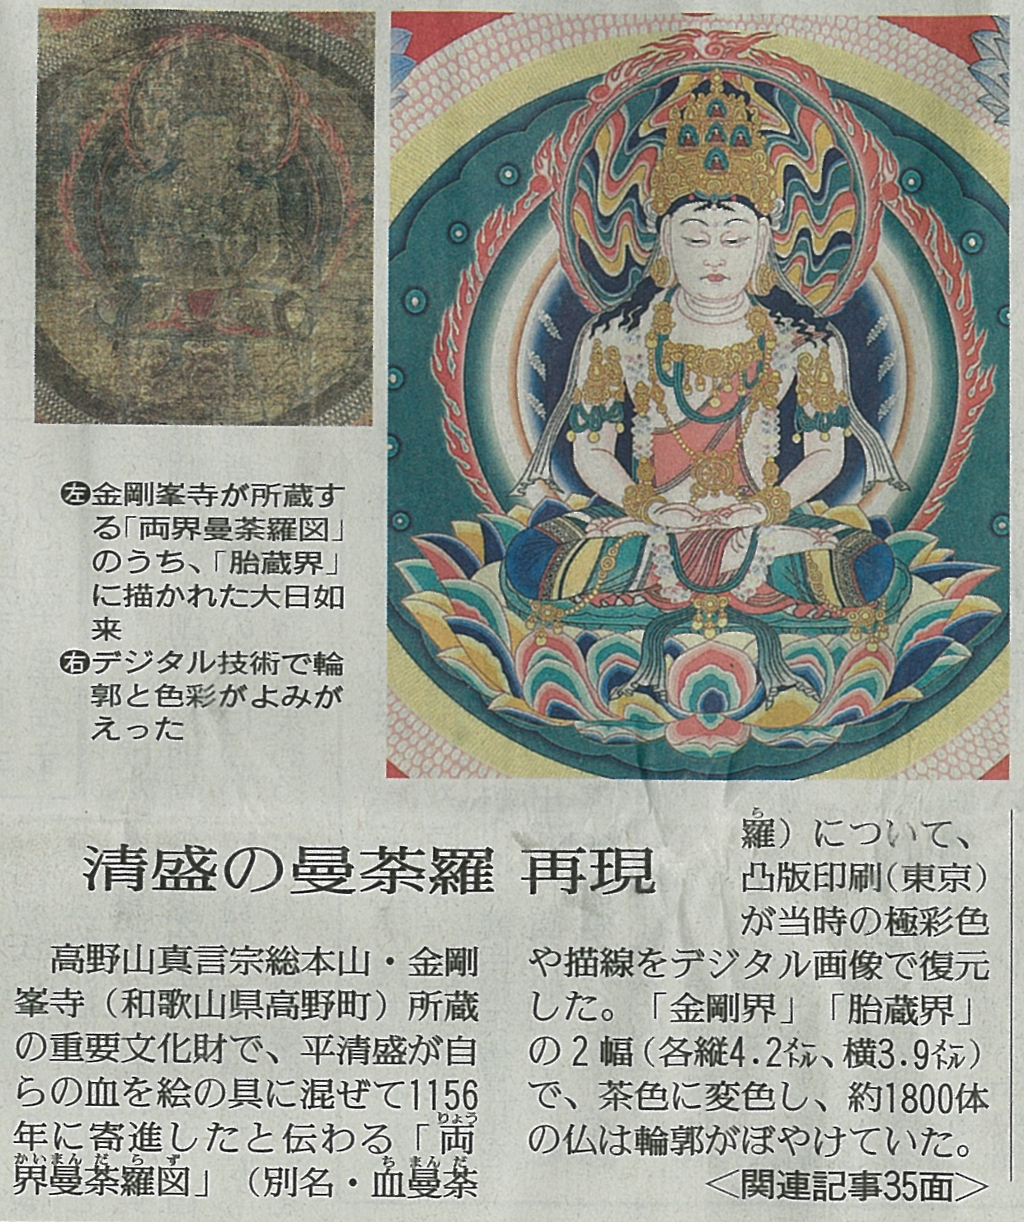 左金剛峯寺が所蔵す
る「両界曼荼羅図」
のうち、「胎蔵界」
に描かれた大日如
来
右デジタル技術で輪
郭と色彩がよみが
えった
清盛の曼荼羅 再現
高野山真言宗総本山・金剛
峯寺(和歌山県高野町)所蔵
の重要文化財で、平清盛が自
らの血を絵の具に混ぜて1156
年に寄進したと伝わる「両
りょう
かいまんだらず
界曼荼羅図」(別名・血曼荼
ちまんだ
ら
羅)について、
凸版印刷(東京)
が当時の極彩色
や描線をデジタル画像で復元
した。「金剛界」「胎蔵界」
の2幅(各縦4.2㍍、横3.9㍍)
で、茶色に変色し、約1800体
の仏は輪郭がぼやけていた。
<関連記事35面>